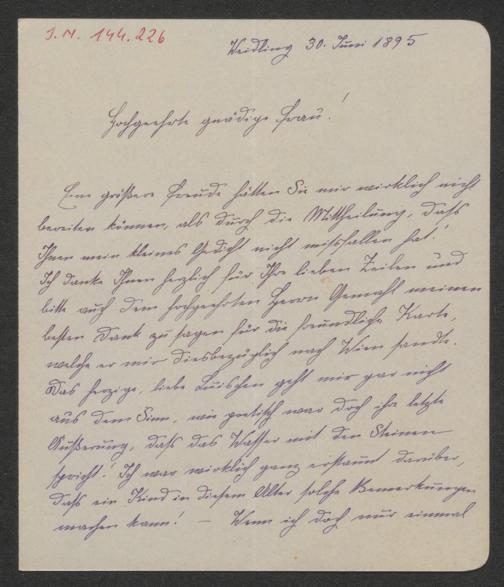 I. N. 144.226
Weidling 30. Juni 1895
Hochgeehrte gnädige Frau!
Eine größere Freude hätten Sie mir wirklich nicht
bereiten können, als durch die Mittheilung, daß
Ihnen mein kleines Gedicht nicht mißfallen hat!
Ich danke Ihnen herzlich für Ihre lieben Zeilen und
bitte auch dem hochgeehrten Herrn Gemahl meinen
besten Dank zu sagen für die freundliche Karte,
welche er mir diesbezüglich nach Wien sandte.
Das herzige, liebe Luischen geht mir gar nicht
aus dem Sinn, wie poetisch war doch ihre letzte
Äußerung, daß das Wasser mit den Steinen
spricht! Ich war wirklich ganz erstaunt darüber,
daß ein Kind in diesem Alter solche Bemerkungen
machen kann! – Wenn ich doch nur einmal